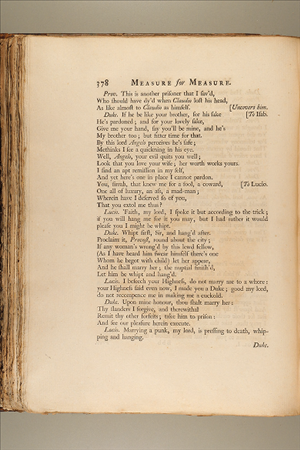 378 MEASURE for MEASURE.
Prov. This is another prisoner that I sav'd,
Who should have dy'd when Claudio lost his head,
As like almost to Claudio as himself. [Uncovers him.
Duke. If he be like your brother, for his sake [To Isab.
He's pardoned; and for your lovely sake,
Give me your hand, say you'll be mine, and he's
My brother too; but fitter time for that.
By this lord Angelo perceives he's safe;
Methinks I see a quickning in his eye.
Well, Angelo, your evil quits you well;
Look that you love your wife; her worth works yours.
I find an apt remission in my self,
And yet here's one in place I cannot pardon.
You, sirrah, that knew me for a fool, a coward, [To Lucio.
One all of luxury, an ass, a mad-man;
Wherein have I deserved so of you,
That you extol me thus?
Lucio. 'Faith, my lord, I spoke it but according to the trick;
if you will hang me for it you may, but I had rather it would
please you I might be whipt.
Duke. Whipt first, Sir, and hang'd after.
Proclaim it, Provost, round about the city;
If any woman's wrong'd by this lewd fellow,
(As I have heard him swear himself there's one
Whom he begot with child) let her appear,
And he shall marry her; the nuptial finish'd,
Let him be whipt and hang'd.
Lucio. I beseech your Highness, do not marry me to a whore:
your Highness said even now, I made you a Duke; good my lord,
do not recompence me in making me a cuckold.
Duke. Upon mine honour, thou shalt marry her:
Thy slanders I forgive, and therewithal
Remit thy other forfeits; take him to prison:
And see our pleasure herein execute.
Lucio. Marrying a punk, my lord, is pressing to death, whip-
ping and hanging.
Duke.